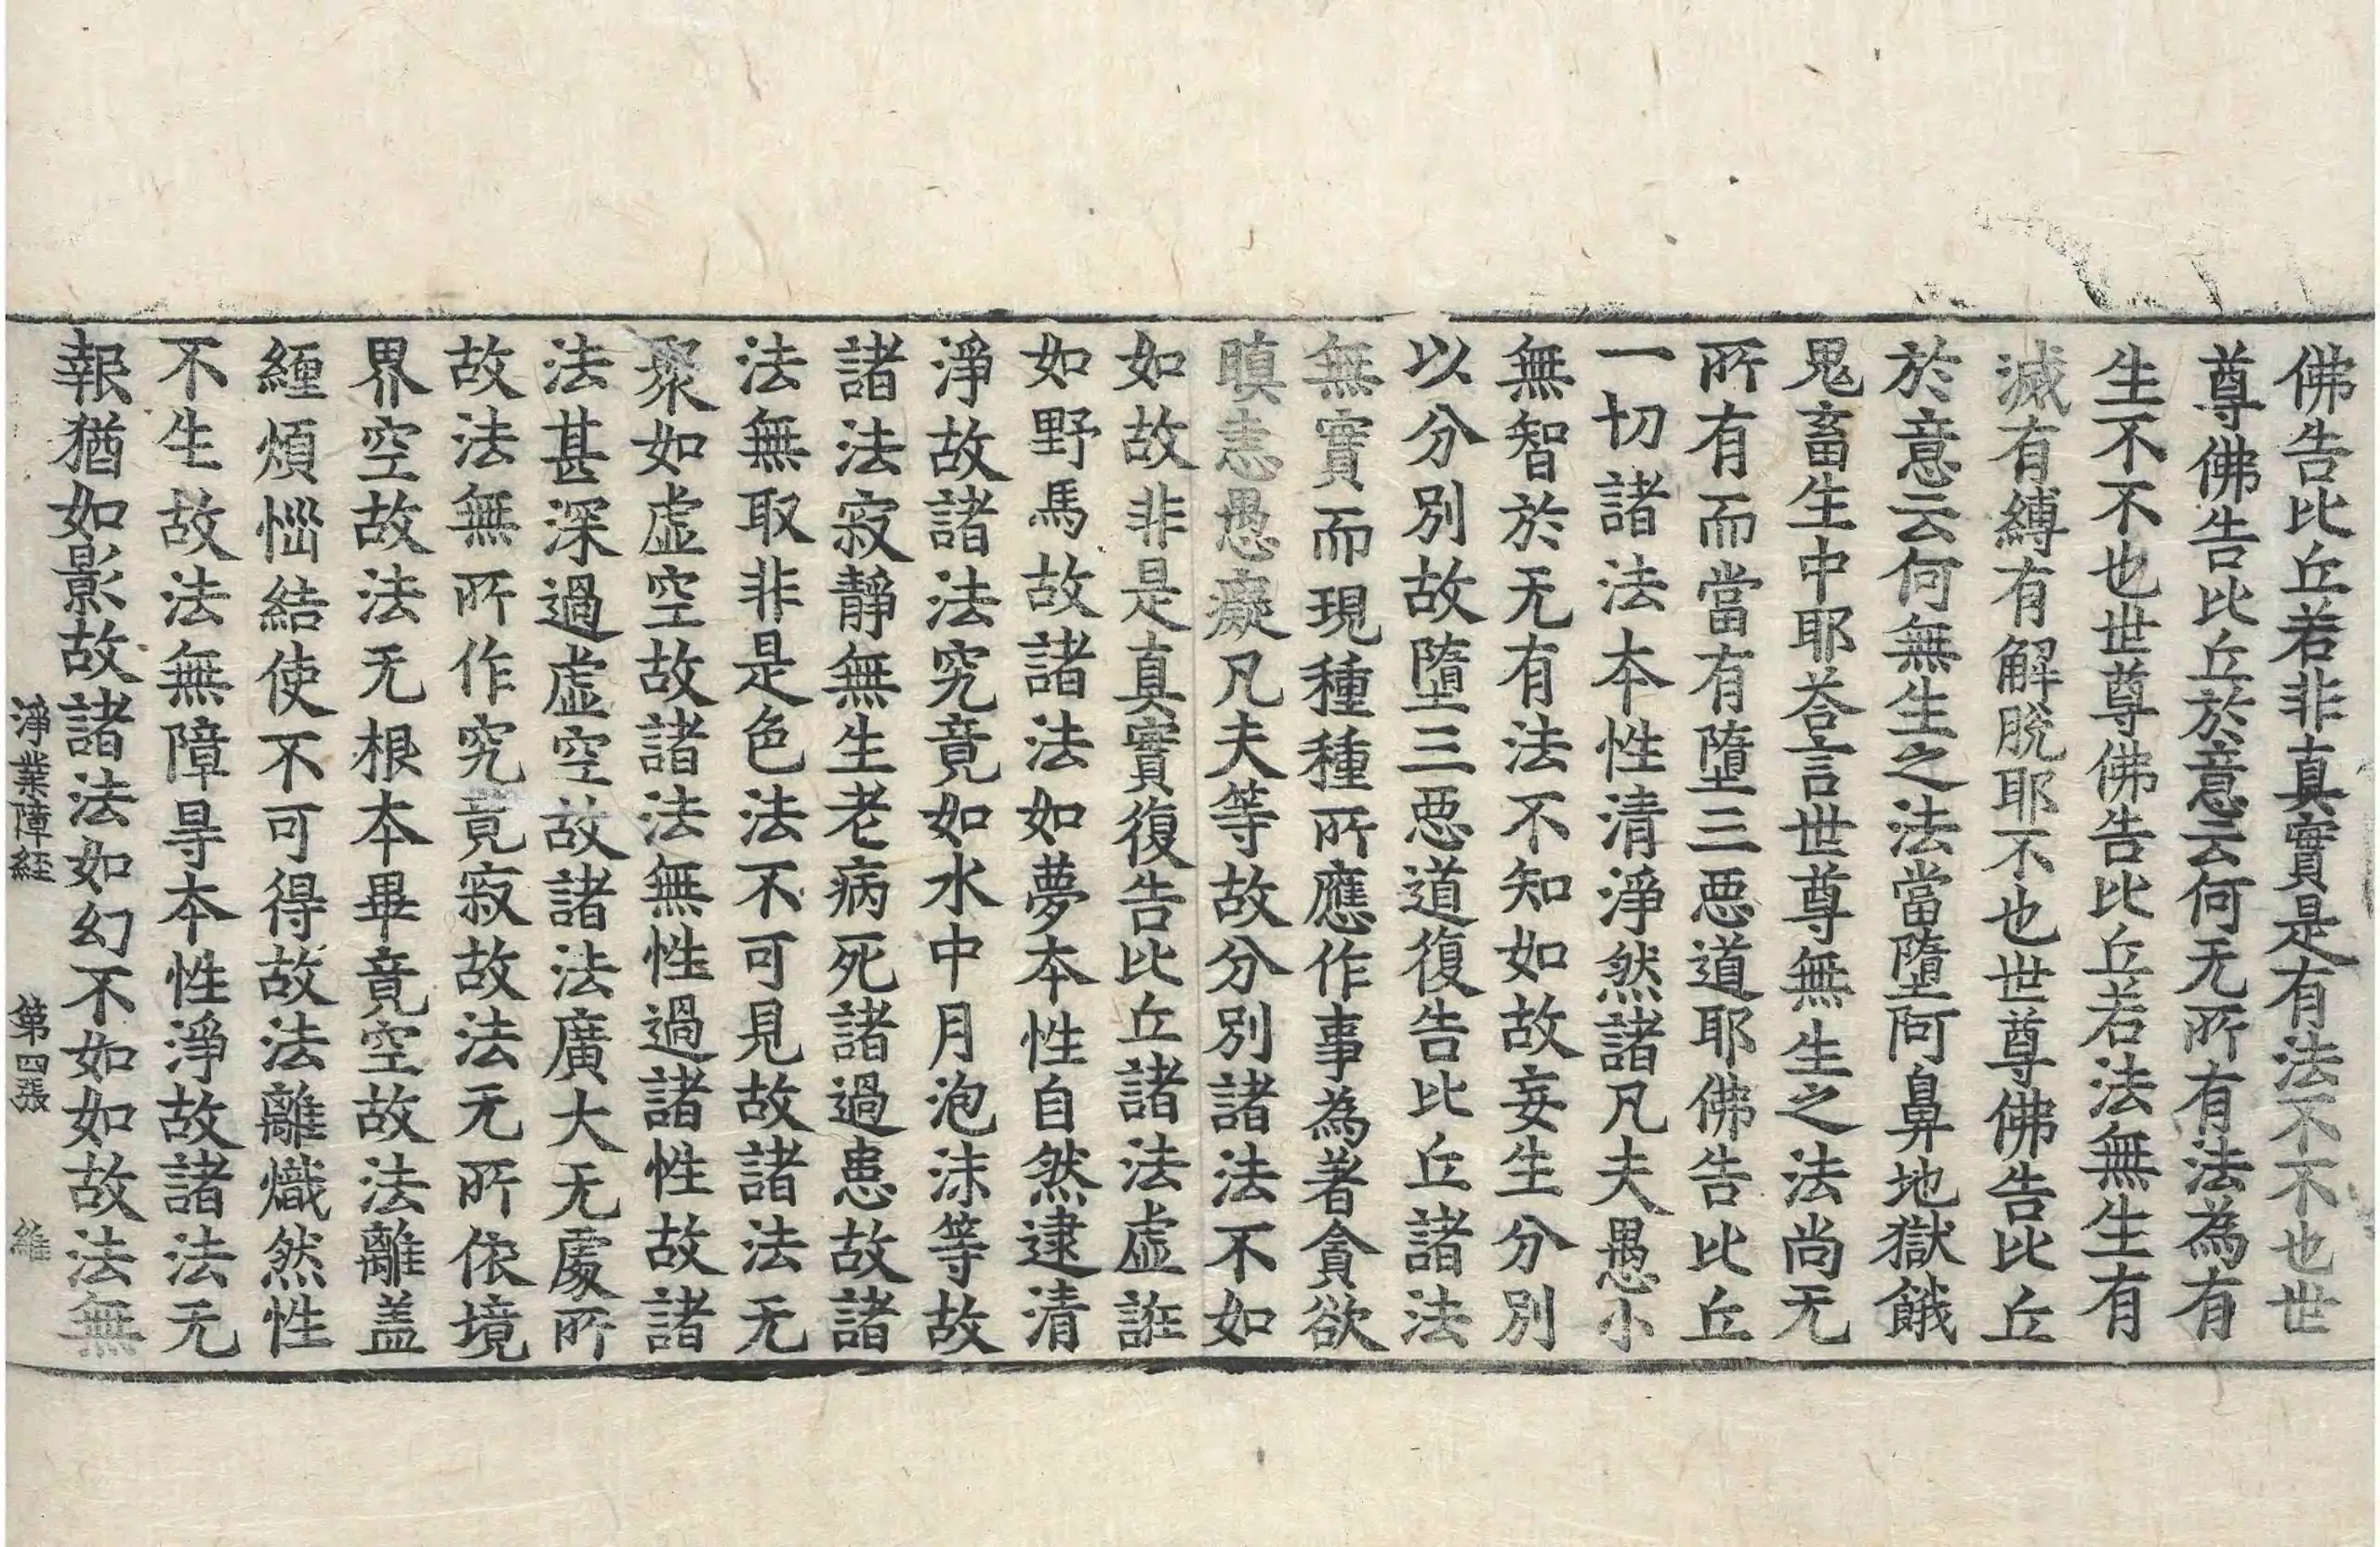 佛告比丘若非真實是有法不不也世
尊佛告比丘於意云何无所有法為有
生不不也世尊佛告比丘若法無生有
滅有縛有解脫耶不也世尊佛告比丘
於意云何無生之法當墮阿鼻地獄餓
鬼畜生中耶荅言世尊無生之法尚无
所有而當有墮三惡道耶佛告比丘
一切諸法本性清淨然諸凡夫愚小
無智於无有法不知如故妄生分別
以分別故墮三惡道復告比丘諸法
無實而現種種所應作事為著貪欲
瞋恚愚癡凡夫等故分別諸法不如
如故非是真實復告比丘諸法虛誑
如野馬故諸法如夢本性自然逮清
淨故諸法究竟如水中月泡沫等故
諸法寂靜無生老病死諸過患故諸
法無取非是色法不可見故諸法无
聚如虛空故諸法無性過諸性故諸
法甚深過虛空故諸法廣大无處所
故法無所作究竟寂故法无所依境
界空故法无根本畢竟空故法離盖
纏煩惱結使不可得故法離熾然性
不生故法無障㝵本性淨故諸法无
報猶如影故諸法如幻不如如故法無
淨業障經 第四張 維